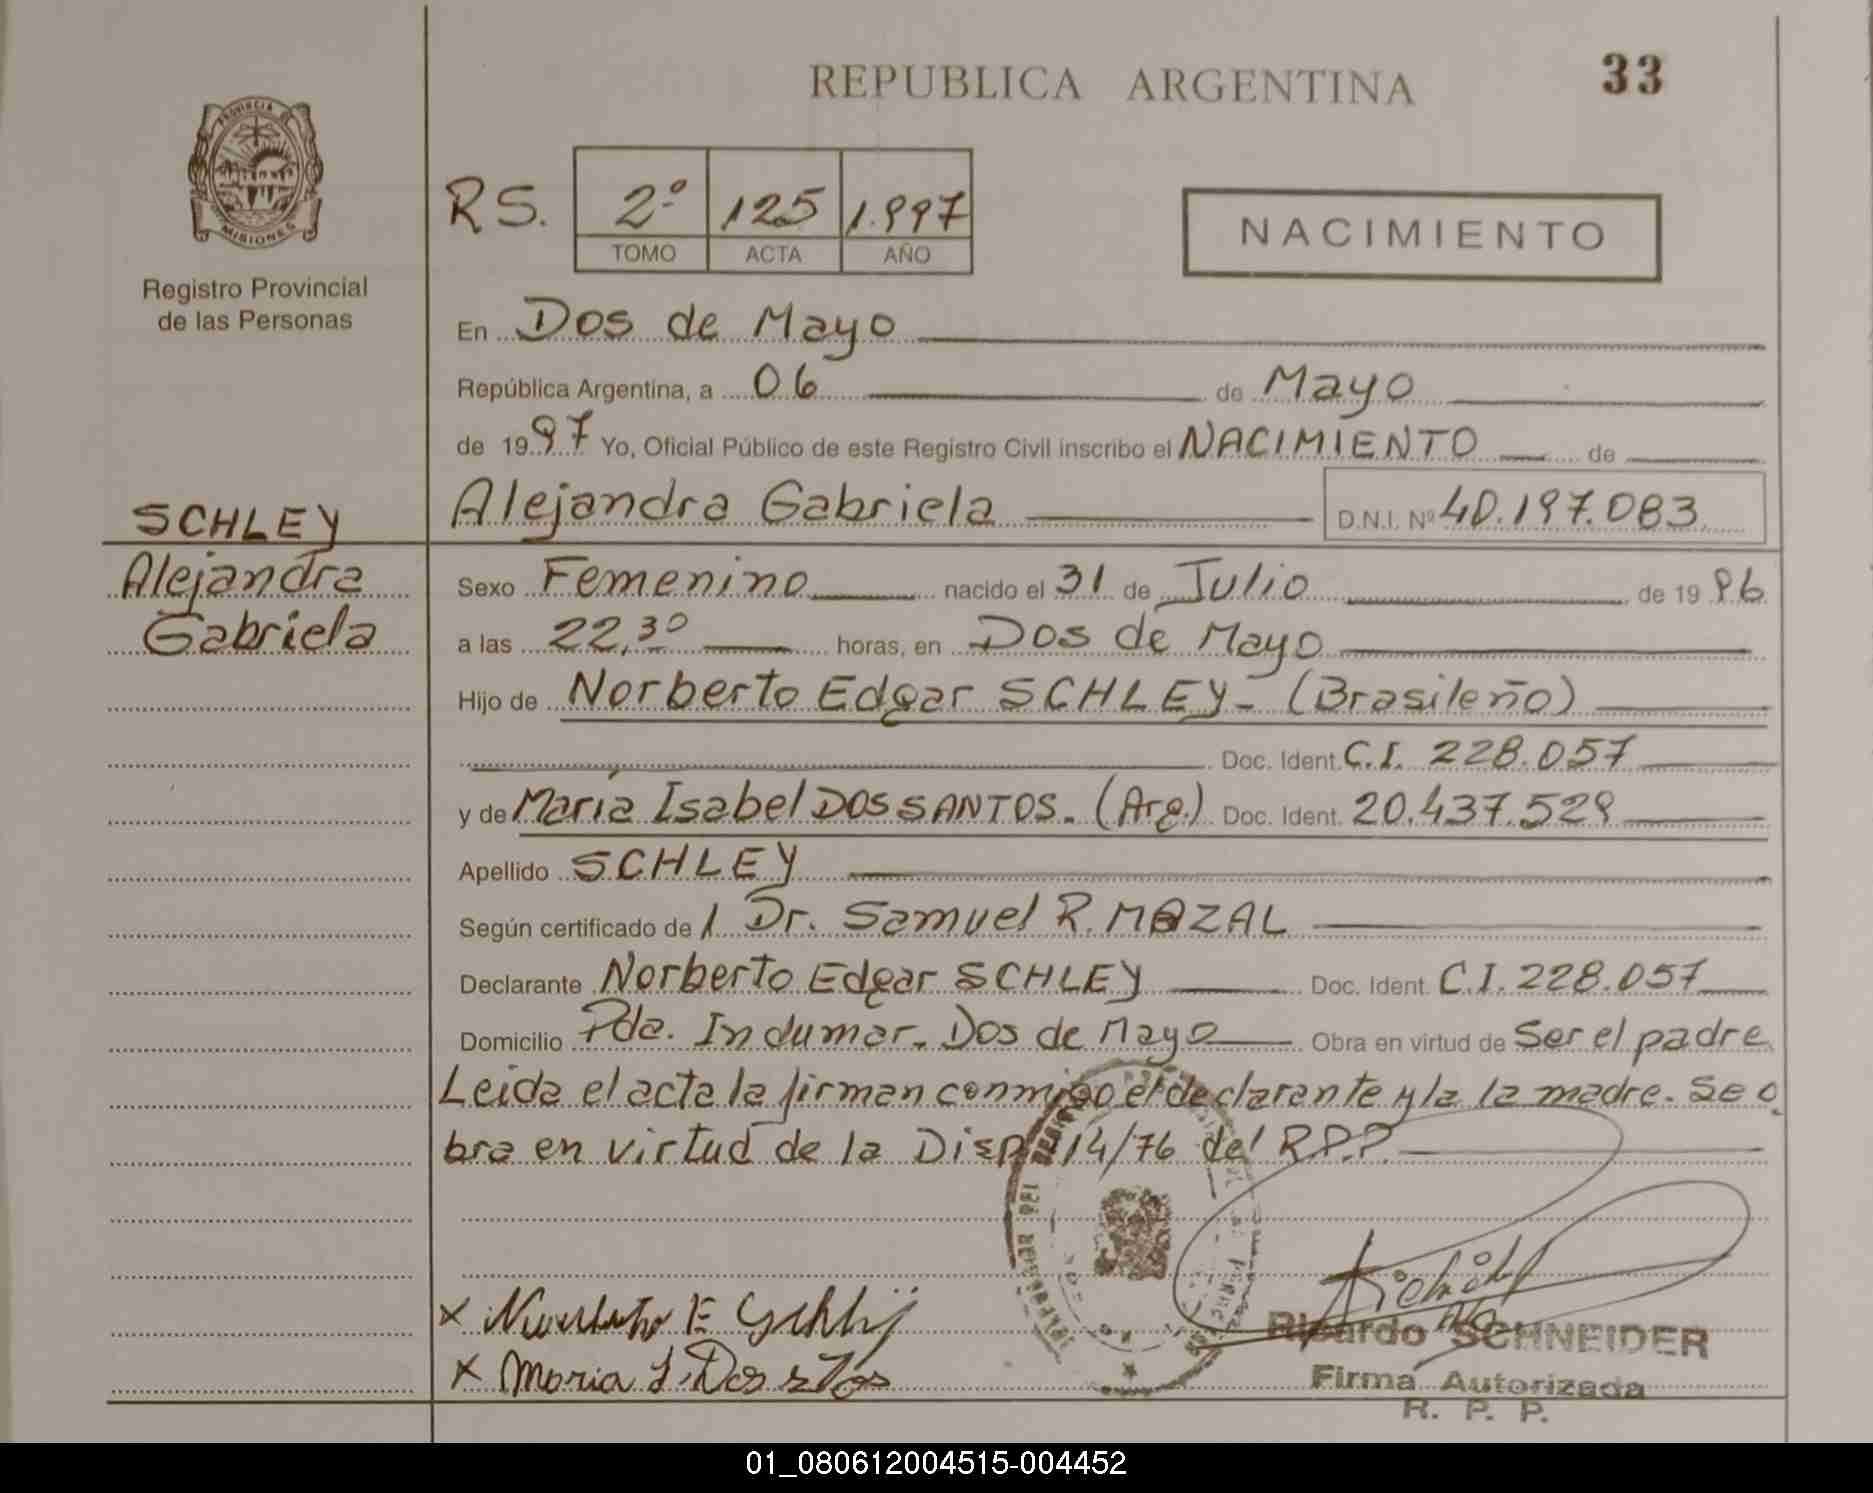 REPUBLICA ARGENTINA
33
PROVINCIA DE
MISIONES
Registro Provincial
de las Personas
RS.
2º 125 1.997
TOMO ACTA AÑO
NACIMIENTO
En Dos de Mayo
República Argentina, a 06 de Mayo
de 1997 Yo, Oficial Público de este Registro Civil inscribo el NACIMIENTO de
SCHLEY
Alejandra
Gabriela
Alejandra Gabriela D.N.I. Nº 40.197.083
Sexo Femenino nacido el 31 de Julio de 1996
a las 22,30 horas, en Dos de Mayo
Hijo de Norberto Edgar SCHLEY- (Brasileño)
Doc. Ident. C.I. 228.057
y de María Isabel DOS SANTOS. (Arg.) Doc. Ident. 20.437.529
Apellido SCHLEY
Según certificado de / Dr. Samuel R. MAZAL
Declarante Norberto Edgar SCHLEY Doc. Ident. C.I. 228.057
Domicilio Pda. Indumar. Dos de Mayo Obra en virtud de Ser el padre
Leida el acta la firman conmigo el declarante y la la madre. Se o
bra en virtud de la Disp. 14/76 del R.P.P.
x Norberto E Schley
x Maria I. Dos stos
Ricardo SCHNEIDER
Firma Autorizada
R. P. P.
01_080612004515-004452